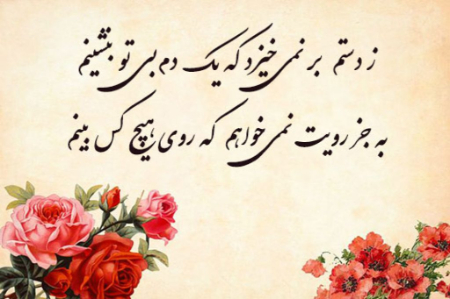 ز دستم بر نمی خیزد که یک دم بی تو بنشینم
به جز رویت نمی خواهم که روی هیچ کس بینم